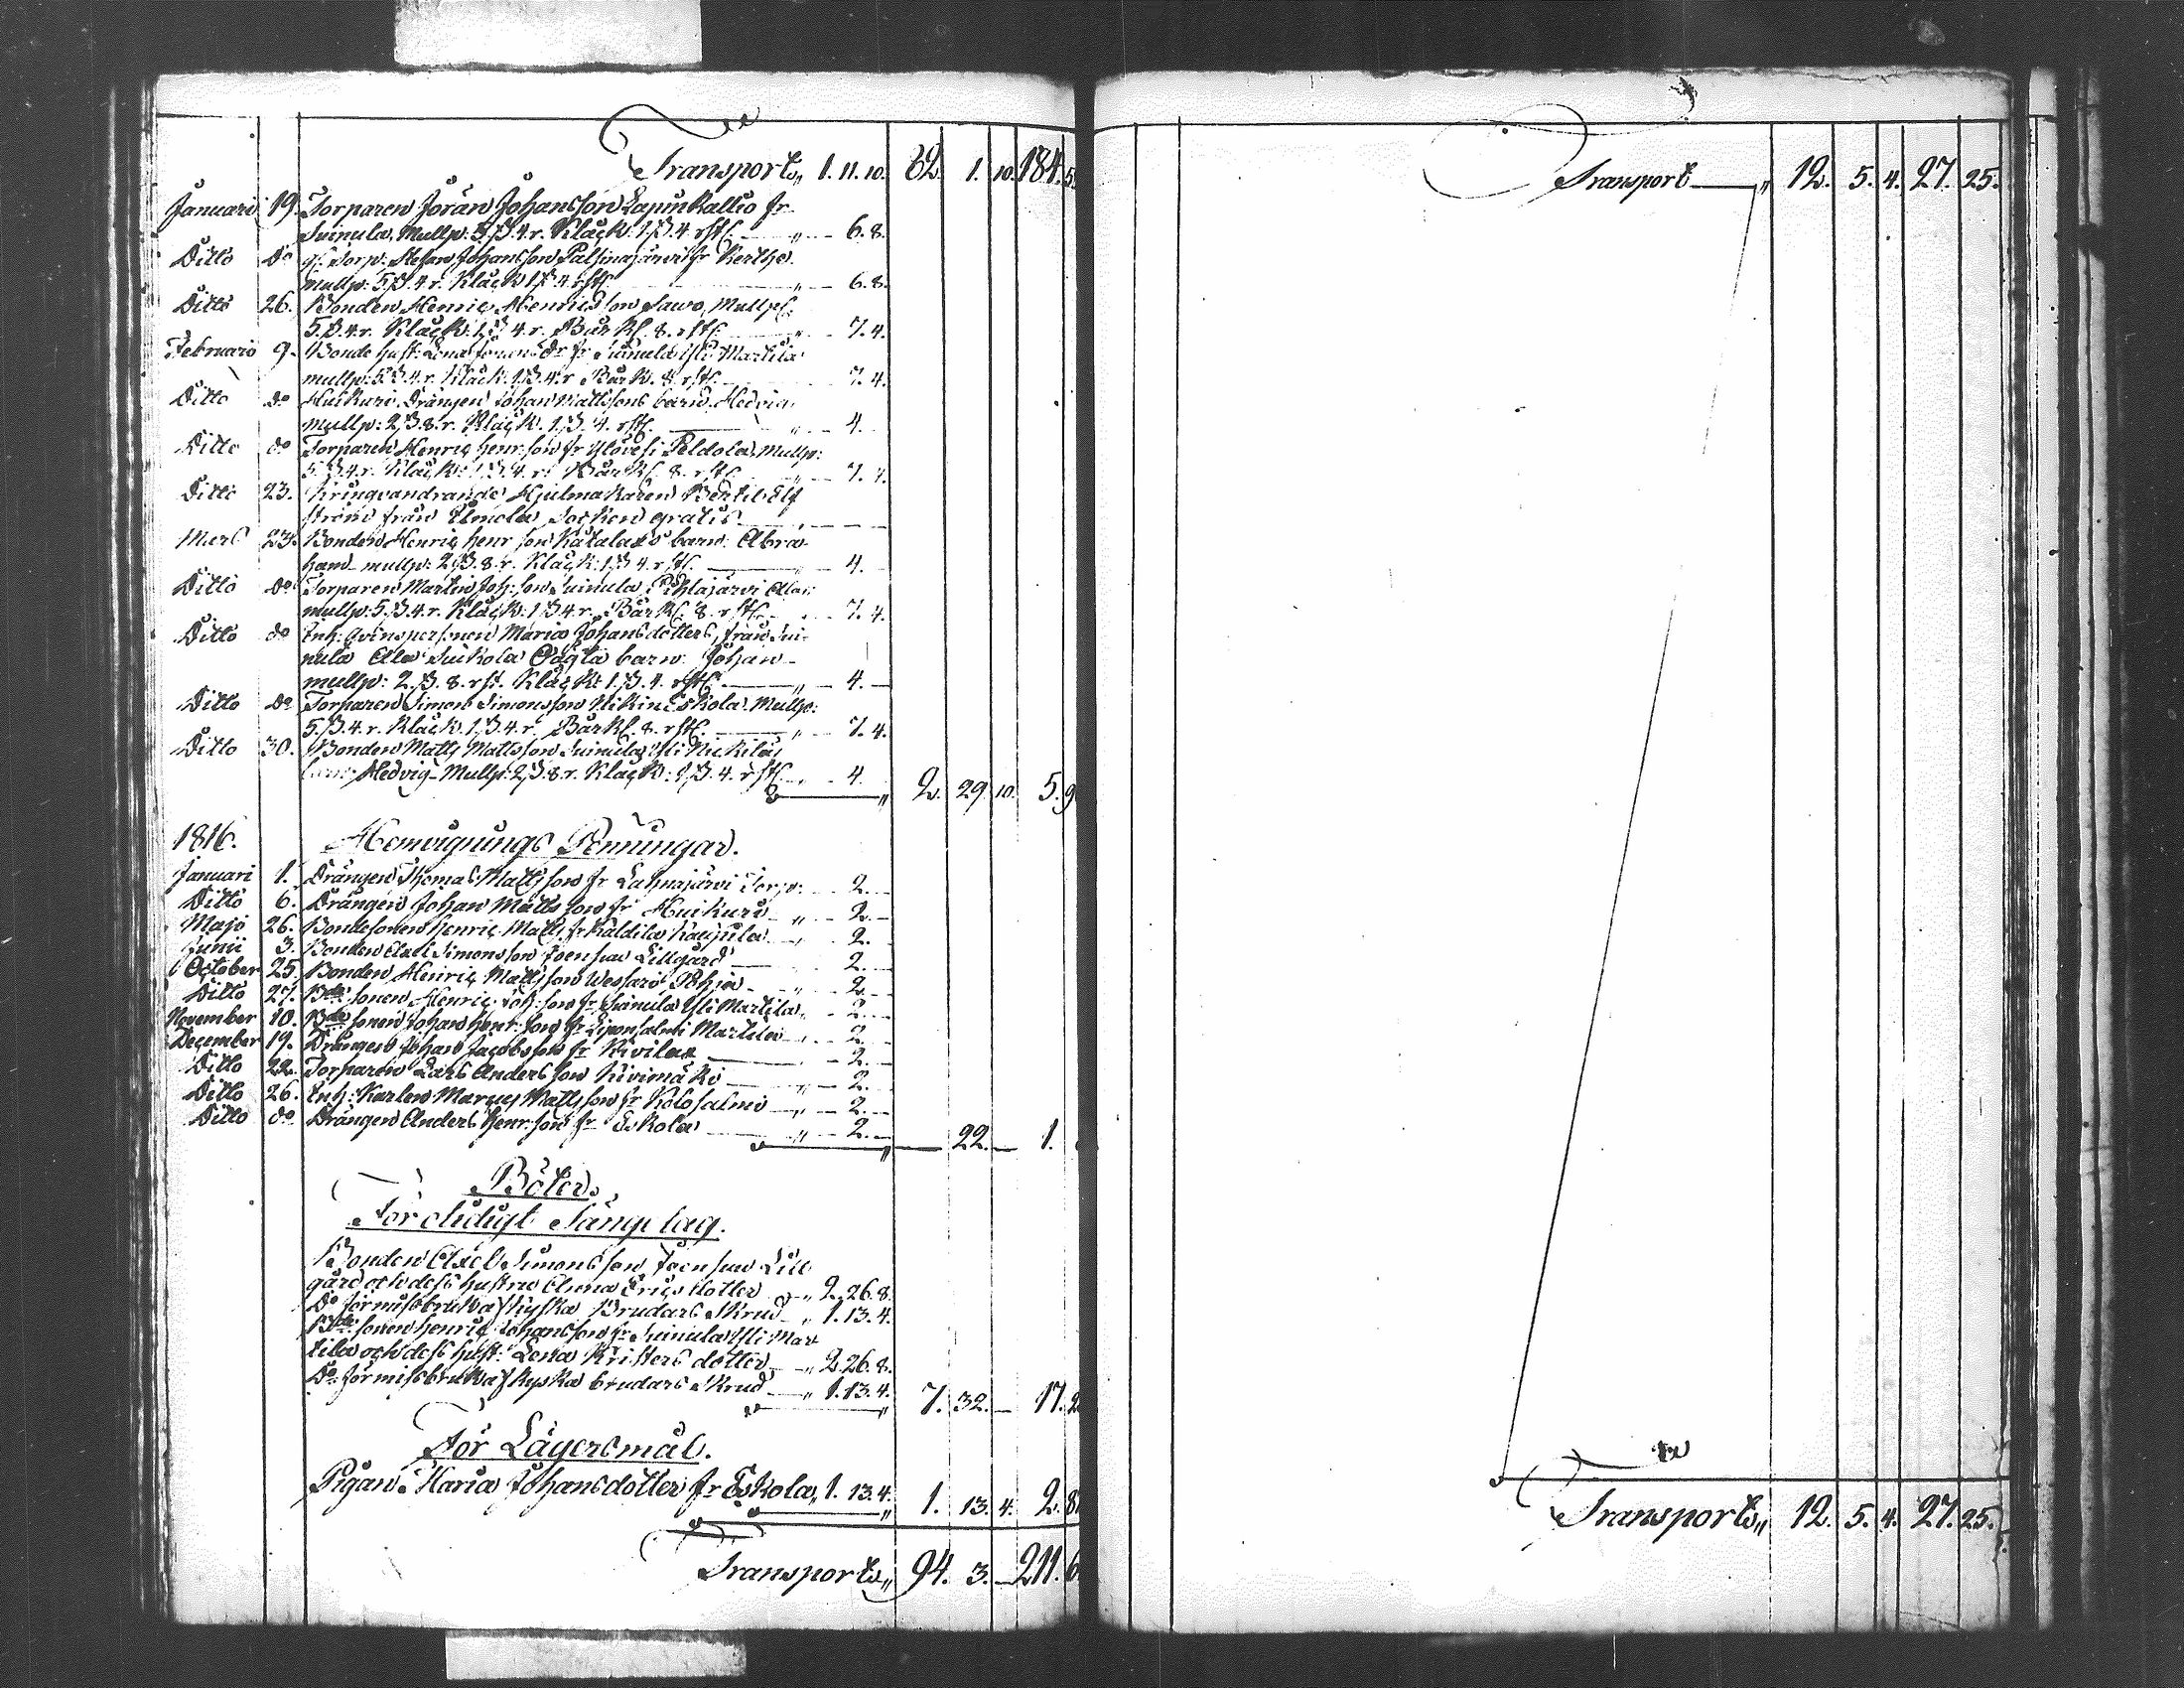 Transport„ 1. 11. 10. 82. 1. 10. 184. 5
Januari 19. Torparen Jöran Johansson Lapinkallio fr
Suinula, Mullp: 5 β. 4. r. Kläck: 1 β 4 rst. „ 6. 8.
Ditto do Torp: Stefan Johansson Paltinajärvi fr
mullp: 5 β. 4. r. Kläck 1 β 4 rst. „ 6. 8.
Ditto 26. Bonden Henric Henricsson Sawo, Mullp:
5. β. 4. r. Kläck: 1. β 4. r. Bårkl. 8. rst. „ 7. 4.
Februarii 9. Bonde hust: Lena fr Suinula Yli Martila
mullp: 5 β 4. r. Kläck. 1 β. 4. r Bårk. 8. rst. 7. 4.
Ditto do Huikuri, Drängen Johan Mattssons barn Hedvig
mullp: 2 β. 8. r. Kläck. 1. β. 4. rst. „ 4.
Ditto do Torparen Henric Henr:son fr Ylövesi Peldola, Mullp:
5. β 4. r. Kläck: 1. β. 4. r. Bårkl. 8. rst. „ 7. 4.
Ditto 23. Kringvandrande Hjulmakaren Bertil Elf
ström från Socken gratis
Mars 23. Bonden Henric Henr:son barn: Abra-
ham mullp: 2 β. 8. r. Kläck: 1 β 4. rst. 4.
Ditto do Torparen Martin Joh:son Suinula Pihlajärvi
mullp: 5. β 4. r. Kläck: 1 β 4. r. Bårkl. 8. rst. 7. 4.
Ditto do Inh: Qvinspersonen Maria Johansdotters, från Sui-
nula Ala Suikola Oägta barn: Johan
mullp: 2. β. 8. rst. Kläck: 1. β. 4. rst. „ 4.
Ditto do Torparen Simon Simonsson Eskola. Mullp:
5. β. 4. r. Kläck. 1. β 4. r. Bårkl. 8. rst. „ 7. 4.
Ditto 30. Bonden Matts Mattsson Suinula Yli Nickilä
barn Hedvig Mullp: 2 β 8. r. Kläck: 1. β. 4. rst. „ 4.
„ 2. 29. 10. 5. 9
1816. Hemvignings Penningar.
Januari 1. Drängen Thomas Mattsson fr Lahnajärvi Torp: 2.
Ditto 6. Drängen Johan Mattsson fr Huikuri „ 2.
Majo 26. Bondesonen Henric Matts: fr Kaldila „ 2.
Junii 3. Bonden Axel Simonsson Joensuu Lillgård 2.
October 25. Bonden Henric Mattsson Wesari Pohja „ 2.
Ditto 27. Bde sonen Henric Joh:son fr Suinula Yli Martila, 2.
November 10. Bde sonen Johan Henr:son fr Martila „ 2.
December 19. Drängen Johan Jacobsson fr Kivila 2.
Ditto 22. Torparen Lars Andersson Kivimäki „ 2.
Ditto 26. Inh: Karlen Marcus Mattsson fr Kolosalmi „ 2.
Ditto do Drängen Anders Henr:son fr Eskola „ 2.
„ 22. 1.
Böter.
För otidigt Sänge lag.
Bonden Axel Simonsson Joensuu Lill
gård och dess hustru Anna Erics dotter „ 2. 26. 8.
Do för missbruk af kyska Brudars Skrud „ 1. 13. 4.
Bde sonen Henric Johansson fr Suinula Yli Mar
tila och dess hust: Lena Kristers dotter „ 2. 26. 8.
Do för missbruk af kyska brudars Skrud „ 1. 13. 4.
„ 7. 32. 17. 2
För Lägersmål.
Pigan Maria Johansdotter fr Eskola „ 1. 13. 4.
„ 1. 13. 4. 2. 8
Transport„ 94. 3. 211. 6
Transport „ 12. 5. 4. 27. 25.
Transport„ 12. 5. 4. 27. 25.